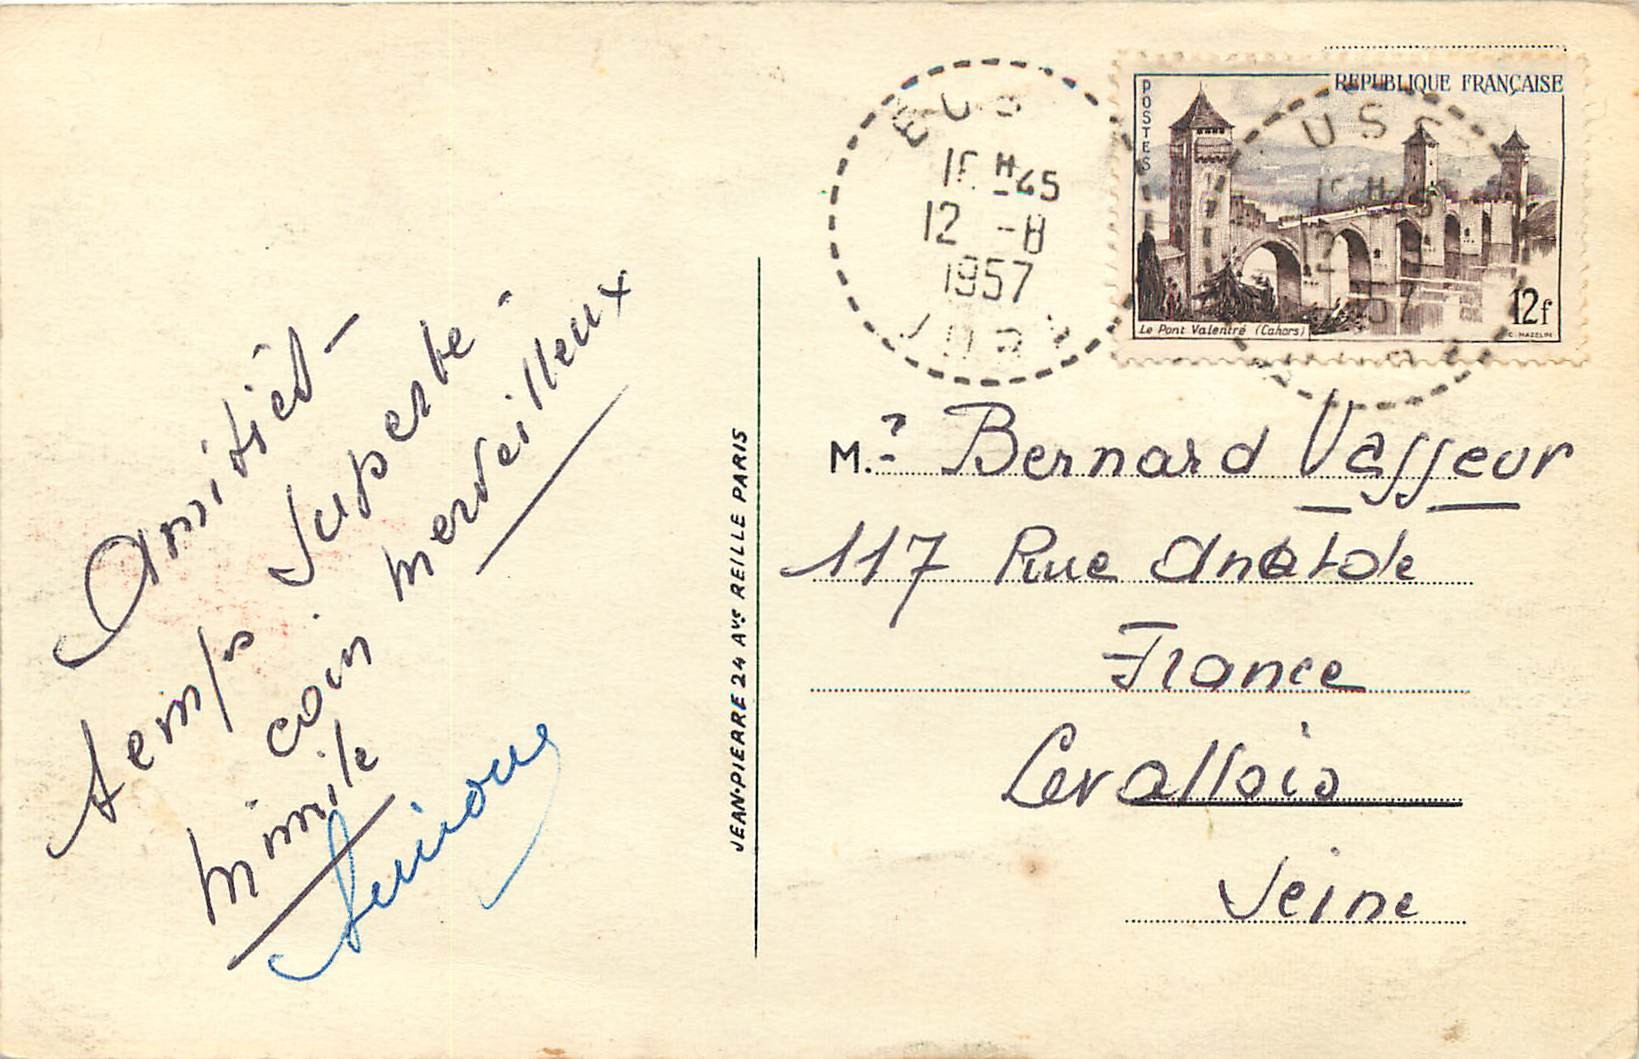 Amitiés -
temps superbe -
coin merveilleux
Mimile
JEAN-PIERRE 24 AVE REILLE PARIS
12 -8
1957
JURA
POSTES
REPUBLIQUE FRANÇAISE
Le Pont Valentré (Cahors)
12f
C. MAZELIN
M.r Bernard Vasseur
117 Rue Anatole
France
Levallois
Seine